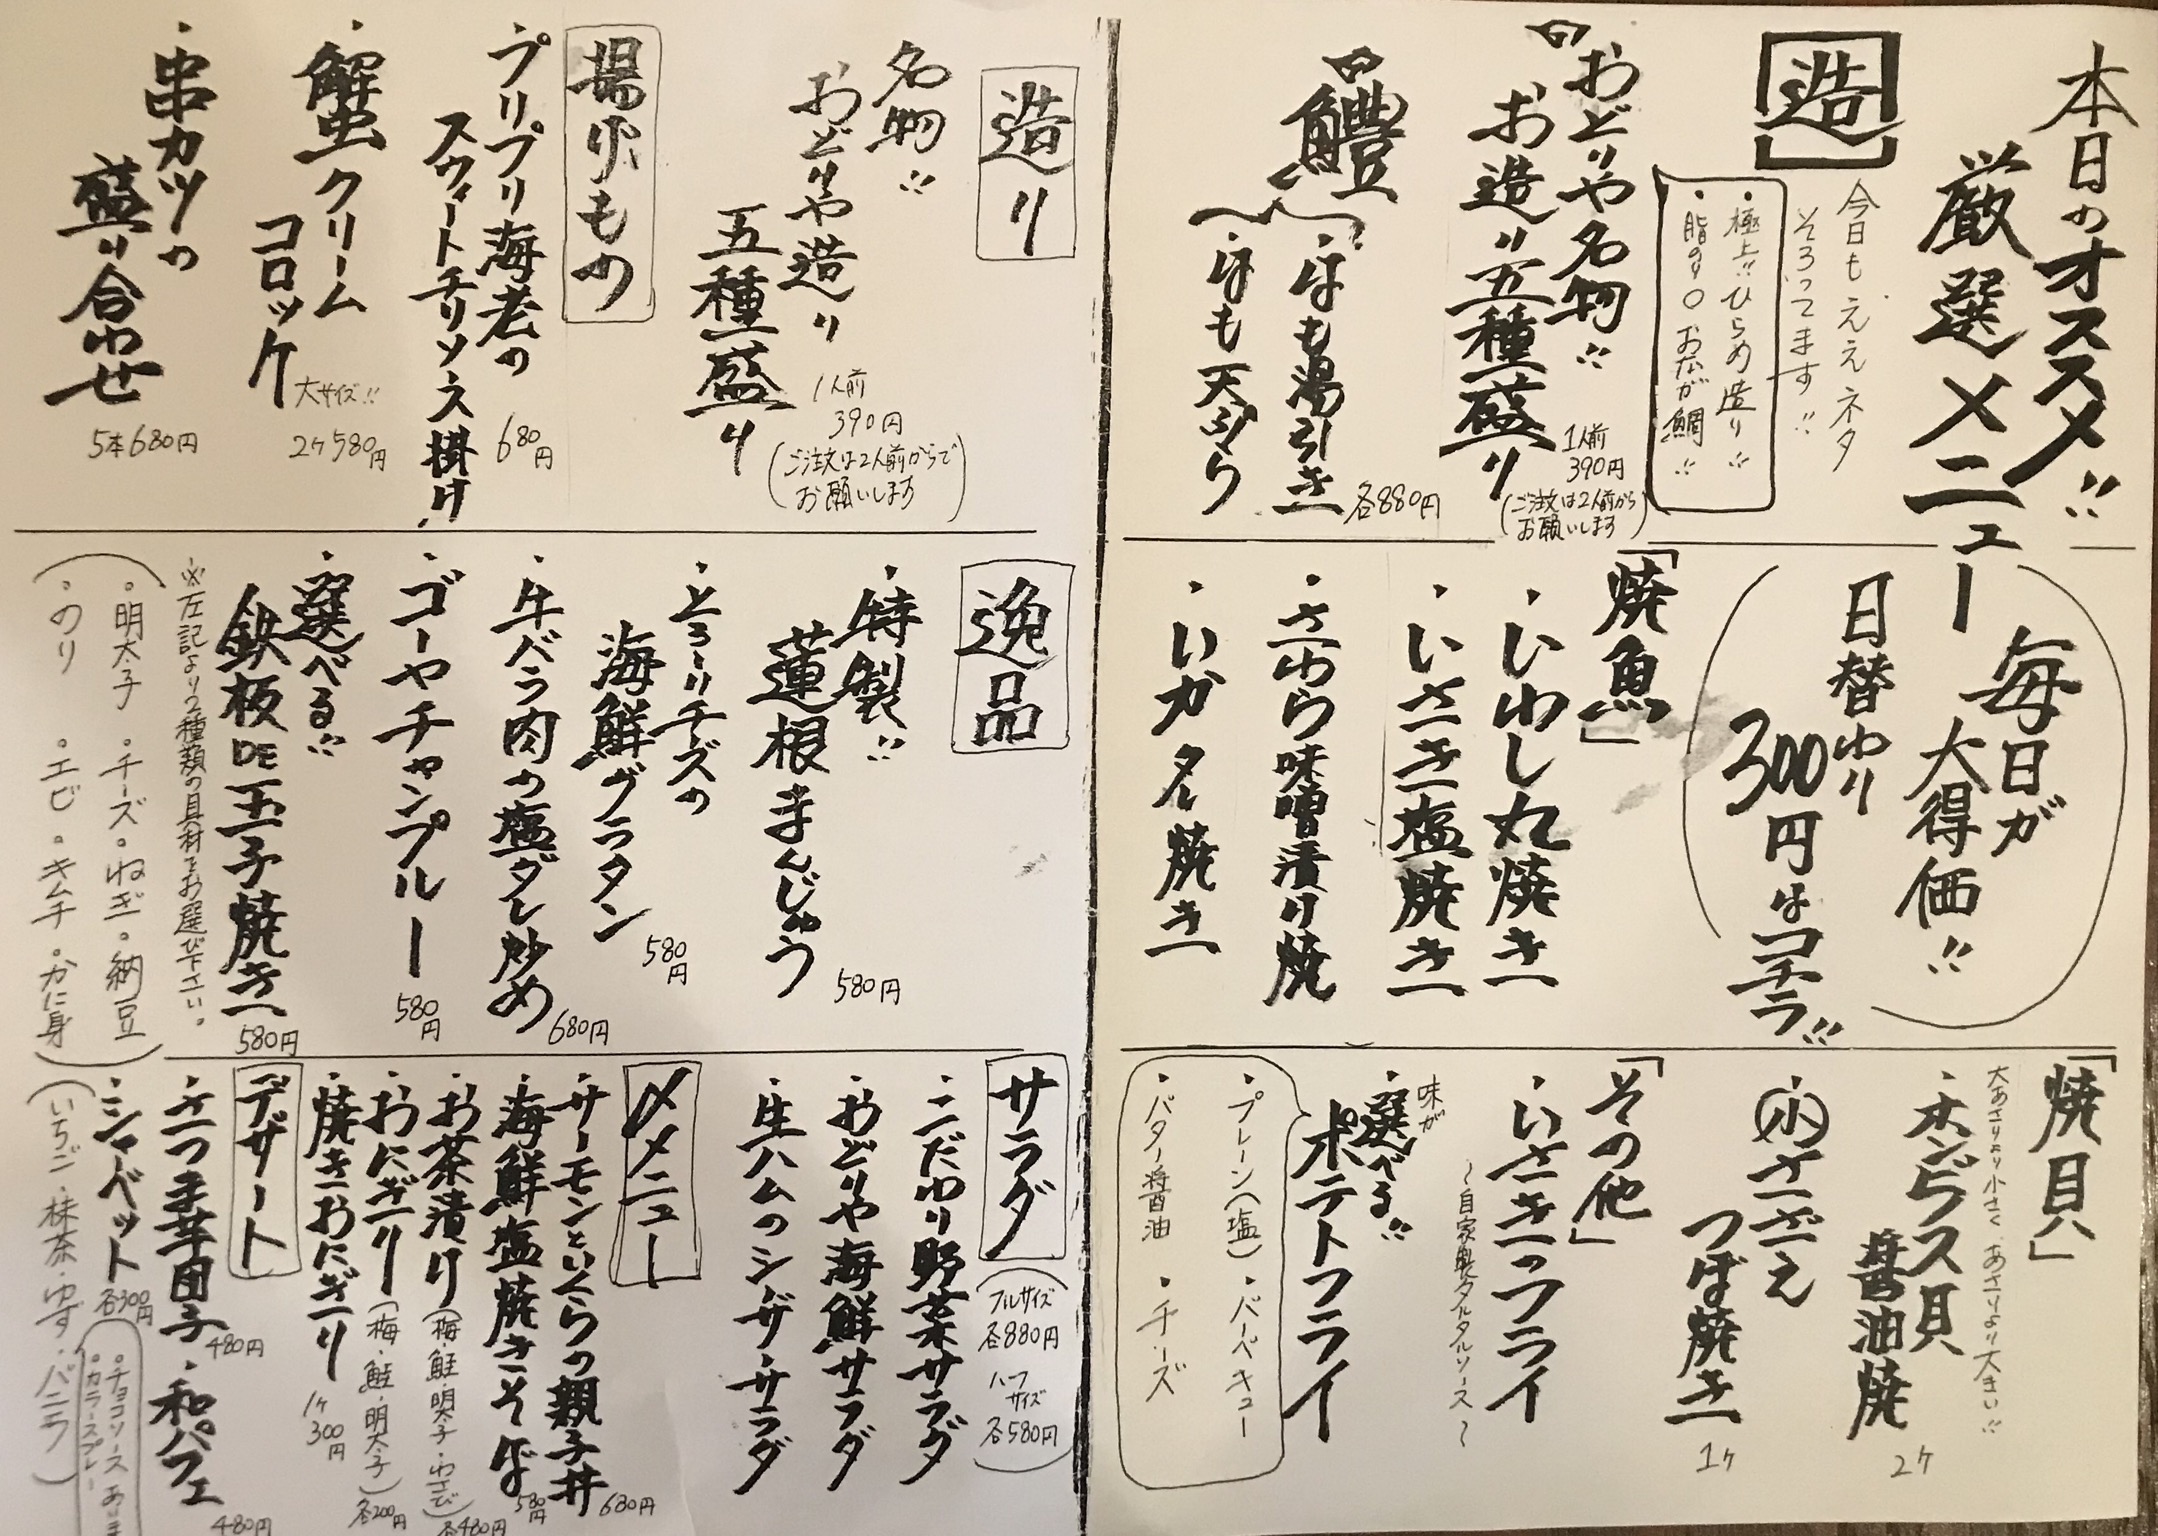 本日のオススメ!!
厳選メニュー
造
今日もええネタ
そろってます!!
・極上!!ひらめ造り!!
・脂のり◎おながが鯛!!
おどりや名物!!
お造り五種盛り
1人前
390円
(ご注文は2人前から
お願いします)
鱧
・はも湯引き
・はも天ぷら
各880円
毎日が
大得価!!
日替わり
300円はコチラ!!
「焼魚」
・いわし丸焼き
・いさき塩焼き
・さわら味噌漬け焼
・いかタレ焼き
「焼貝」
大あさりより小さく、あさりより大きい!!
・ホンビノス貝
醤油焼
2ケ
・小さざえ
つぼ焼き
1ケ
「その他」
・いさきのフライ
〜自家製タルタルソース〜
味が
・選べる!!
ポテトフライ
・プレーン(塩)・バーベキュー
・バター醤油 ・チーズ
造り
名物!!
おどりや造り
五種盛り
1人前
390円
(ご注文は2人前からで
お願いします)
揚げもの
・プリプリ海老の
スウィートチリソース掛け
680円
・蟹クリーム
コロッケ
大サイズ!!
2ケ580円
・串カツの
盛り合わせ
5本680円
逸品
・特製!!
蓮根まんじゅう
580円
・とろーりチーズの
海鮮グラタン
580円
・牛バラ肉の塩ダレ炒め
680円
・ゴーヤチャンプルー
580円
・選べる!!
鉄板DE玉子焼き
580円
※左記より2種類の具材をお選び下さい。
(。明太子 。チーズ 。ねぎ 。納豆
。のり 。エビ 。キムチ 。かに身)
サラダ
(フルサイズ
各880円
ハーフ
サイズ
各580円)
・こだわり野菜サラダ
・おどりや海鮮サラダ
・生ハムのシーザーサラダ
〆メニュー
・サーモンといくらの親子丼
680円
・海鮮塩焼きそば
580円
・お茶漬け(梅・鮭・明太子・わさび)
各480円
・おにぎり(梅・鮭・明太子)
各200円
・焼きおにぎり
1ケ
300円
デザート
・さつま芋団子
480円
・和パフェ
480円
・チョコソース
・カラースプレー
・シャーベット
各300円
(いちご・抹茶・ゆず・バニラ)